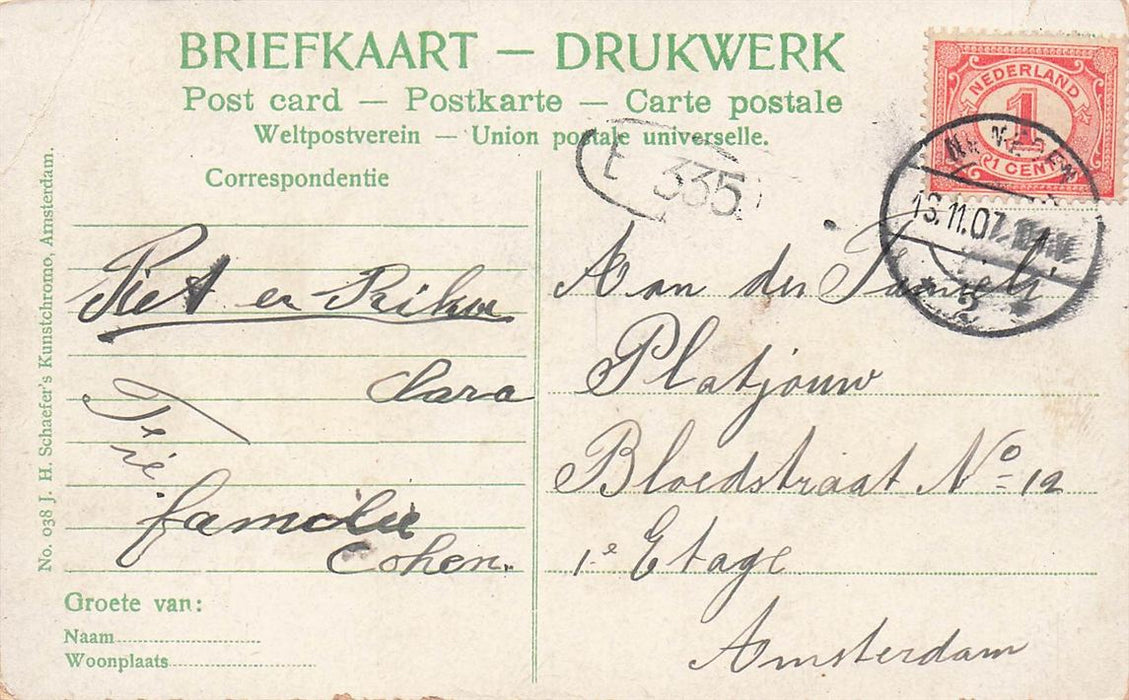 BRIEFKAART — DRUKWERK
Post card — Postkarte — Carte postale
Weltpostverein — Union postale universelle.
Correspondentie
NEDERLAND
1
1 CENT
11.07
335
No. 038 J. H. Schaefer's Kunstchromo, Amsterdam.
Piet en Rika
Clara
familie
Cohen.
Groete van:
Naam
Woonplaats
Aan der Familie
Platjouw
Bloedstraat No 12
1e Etage
Amsterdam